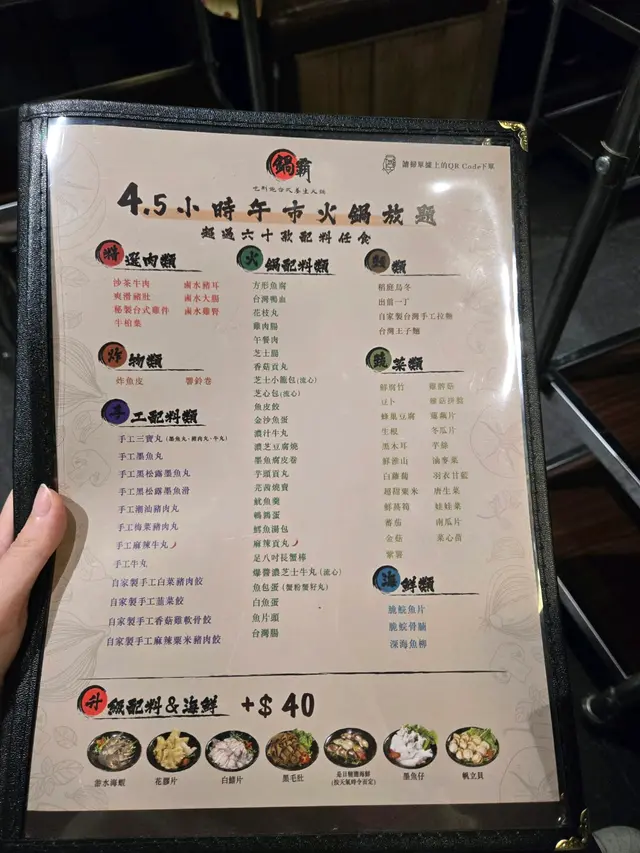 鍋霸
請掃單據上的QR Code下單
4.5小時午市火鍋放題
超過六十款配料任食
精選肉類
沙茶牛肉 鹵水豬耳
爽滑豬肚 鹵水大腸
秘製台式雞件 鹵水雞腎
牛柏葉
炸物類
炸魚皮 響鈴卷
手工配料類
手工三寶丸（墨魚丸、豬肉丸、牛丸）
手工墨魚丸
手工黑松露墨魚丸
手工黑松露墨魚滑
手工潮汕豬肉丸
手工梅菜豬肉丸
手工麻辣牛丸
手工牛丸
自家製手工白菜豬肉餃
自家製手工韮菜餃
自家製手工香菇雞軟骨餃
自家製手工麻辣粟米豬肉餃
火鍋配料類
方形魚腐
台灣鴨血
花枝丸
雞肉腸
午餐肉
芝士腸
香菇貢丸
芝士小籠包（流心）
芝心包（流心）
魚皮餃
金沙魚蛋
濃汁牛丸
濃芝豆腐燒
墨魚腐皮卷
芋頭貢丸
芫茜燒賣
魷魚羹
鵪鶉蛋
鱈魚湯包
麻辣貢丸
足八吋長蟹棒
爆醬濃芝士牛丸（流心）
魚包蛋（蟹粉蟹籽丸）
白魚蛋
魚片頭
台灣腸
麵類
稻庭烏冬
出前一丁
自家製台灣手工拉麵
台灣王子麵
蔬菜類
鮮腐竹 雞髀菇
豆卜
蜂巢豆腐 蓮藕片
生根 冬瓜片
黑木耳 芋絲
鮮淮山 油麥菜
白蘿蔔 羽衣甘藍
超甜粟米 唐生菜
鮮萵筍 娃娃菜
番茄 南瓜片
金菇 菜心苗
紫薯
海鮮類
脆鯇魚片
脆鯇骨腩
深海魚柳
升級配料&海鮮 +$40
游水海蝦 花膠片 白鱔片 黑毛肚 是日種類海鮮 墨魚仔 帆立貝